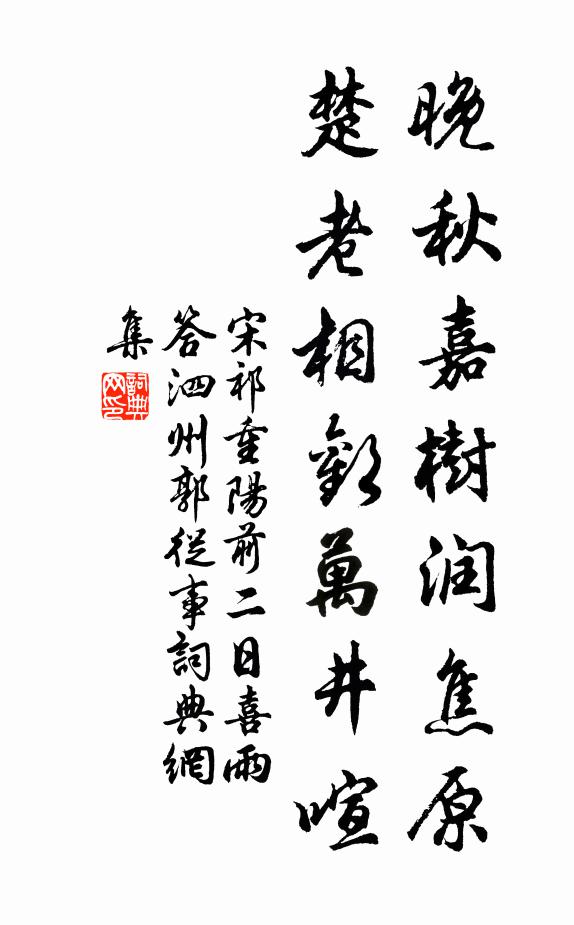 晚秋嘉樹润焦原
楚老相歡萬井喧
宋祁重陽前二日喜雨
答泗州郭從事詞典網
集
詞典
网印